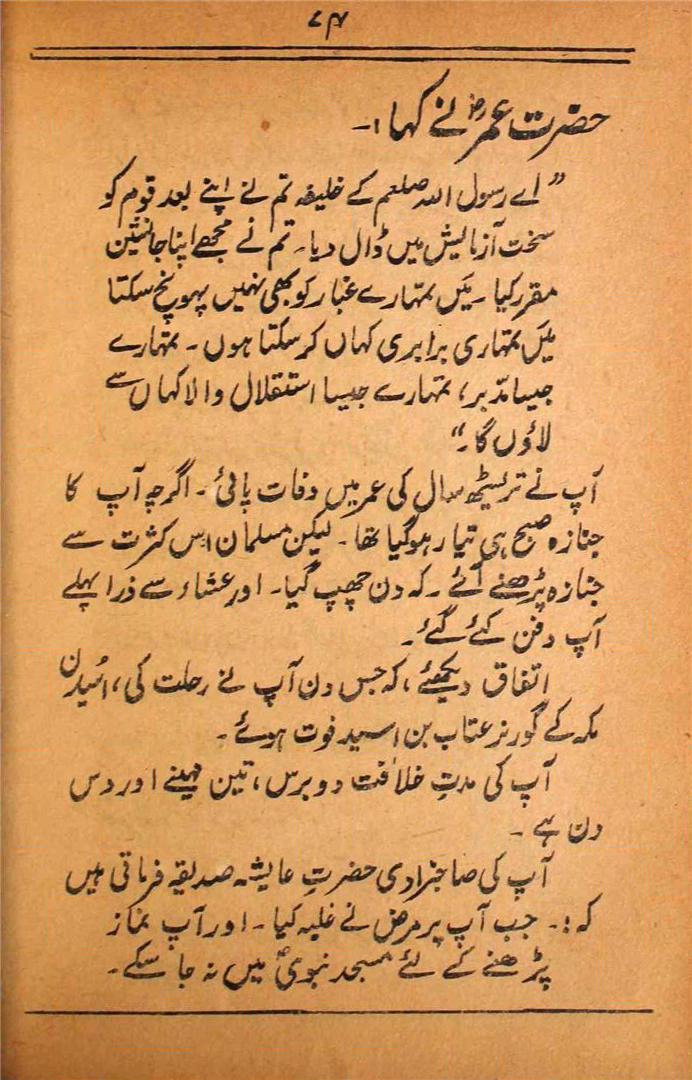 ۷۴
حضرت عمرؓ نے کہا :۔
”اے رسول اللہ صلعم کے خلیفہ تم نے اپنے بعد قوم کو
سخت آزمایش میں ڈال دیا۔ تم نے مجھے اپنا جانشین
مقرر کیا۔ میں تمہارے غبار کو بھی نہیں پہونچ سکتا
میں تمہاری برابری کہاں کر سکتا ہوں۔ تمہارے
جیسا مدّبر، تمہارے جیسا استقلال والا کہاں سے
لاؤں گا۔“
آپ نے تریسٹھ سال کی عمر میں وفات پائی۔ اگرچہ آپ کا
جنازہ صبح ہی تیار ہو گیا تھا۔ لیکن مسلمان اس کثرت سے
جنازہ پڑھنے آئے۔ کہ دن چھپ گیا۔ اور عشاء سے ذرا پہلے
آپ دفن کئے گئے۔
اتفاق دیکھئے، کہ جس دن آپ نے رحلت کی، اُسیدن
مکہ کے گورنر عتاب بن اسید فوت ہوئے۔
آپ کی مدتِ خلافت دو برس، تین مہینے اور دس
دن ہے۔
آپ کی صاحبزادی حضرتِ عایشہ صدیقہ فرماتی ہیں
کہ :۔ جب آپ پر مرض نے غلبہ کیا۔ اور آپ نماز
پڑھنے کے لئے مسجد نبویؐ میں نہ جا سکے۔